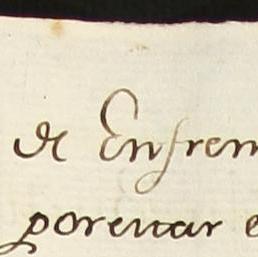 de Enfrem
por euitar e